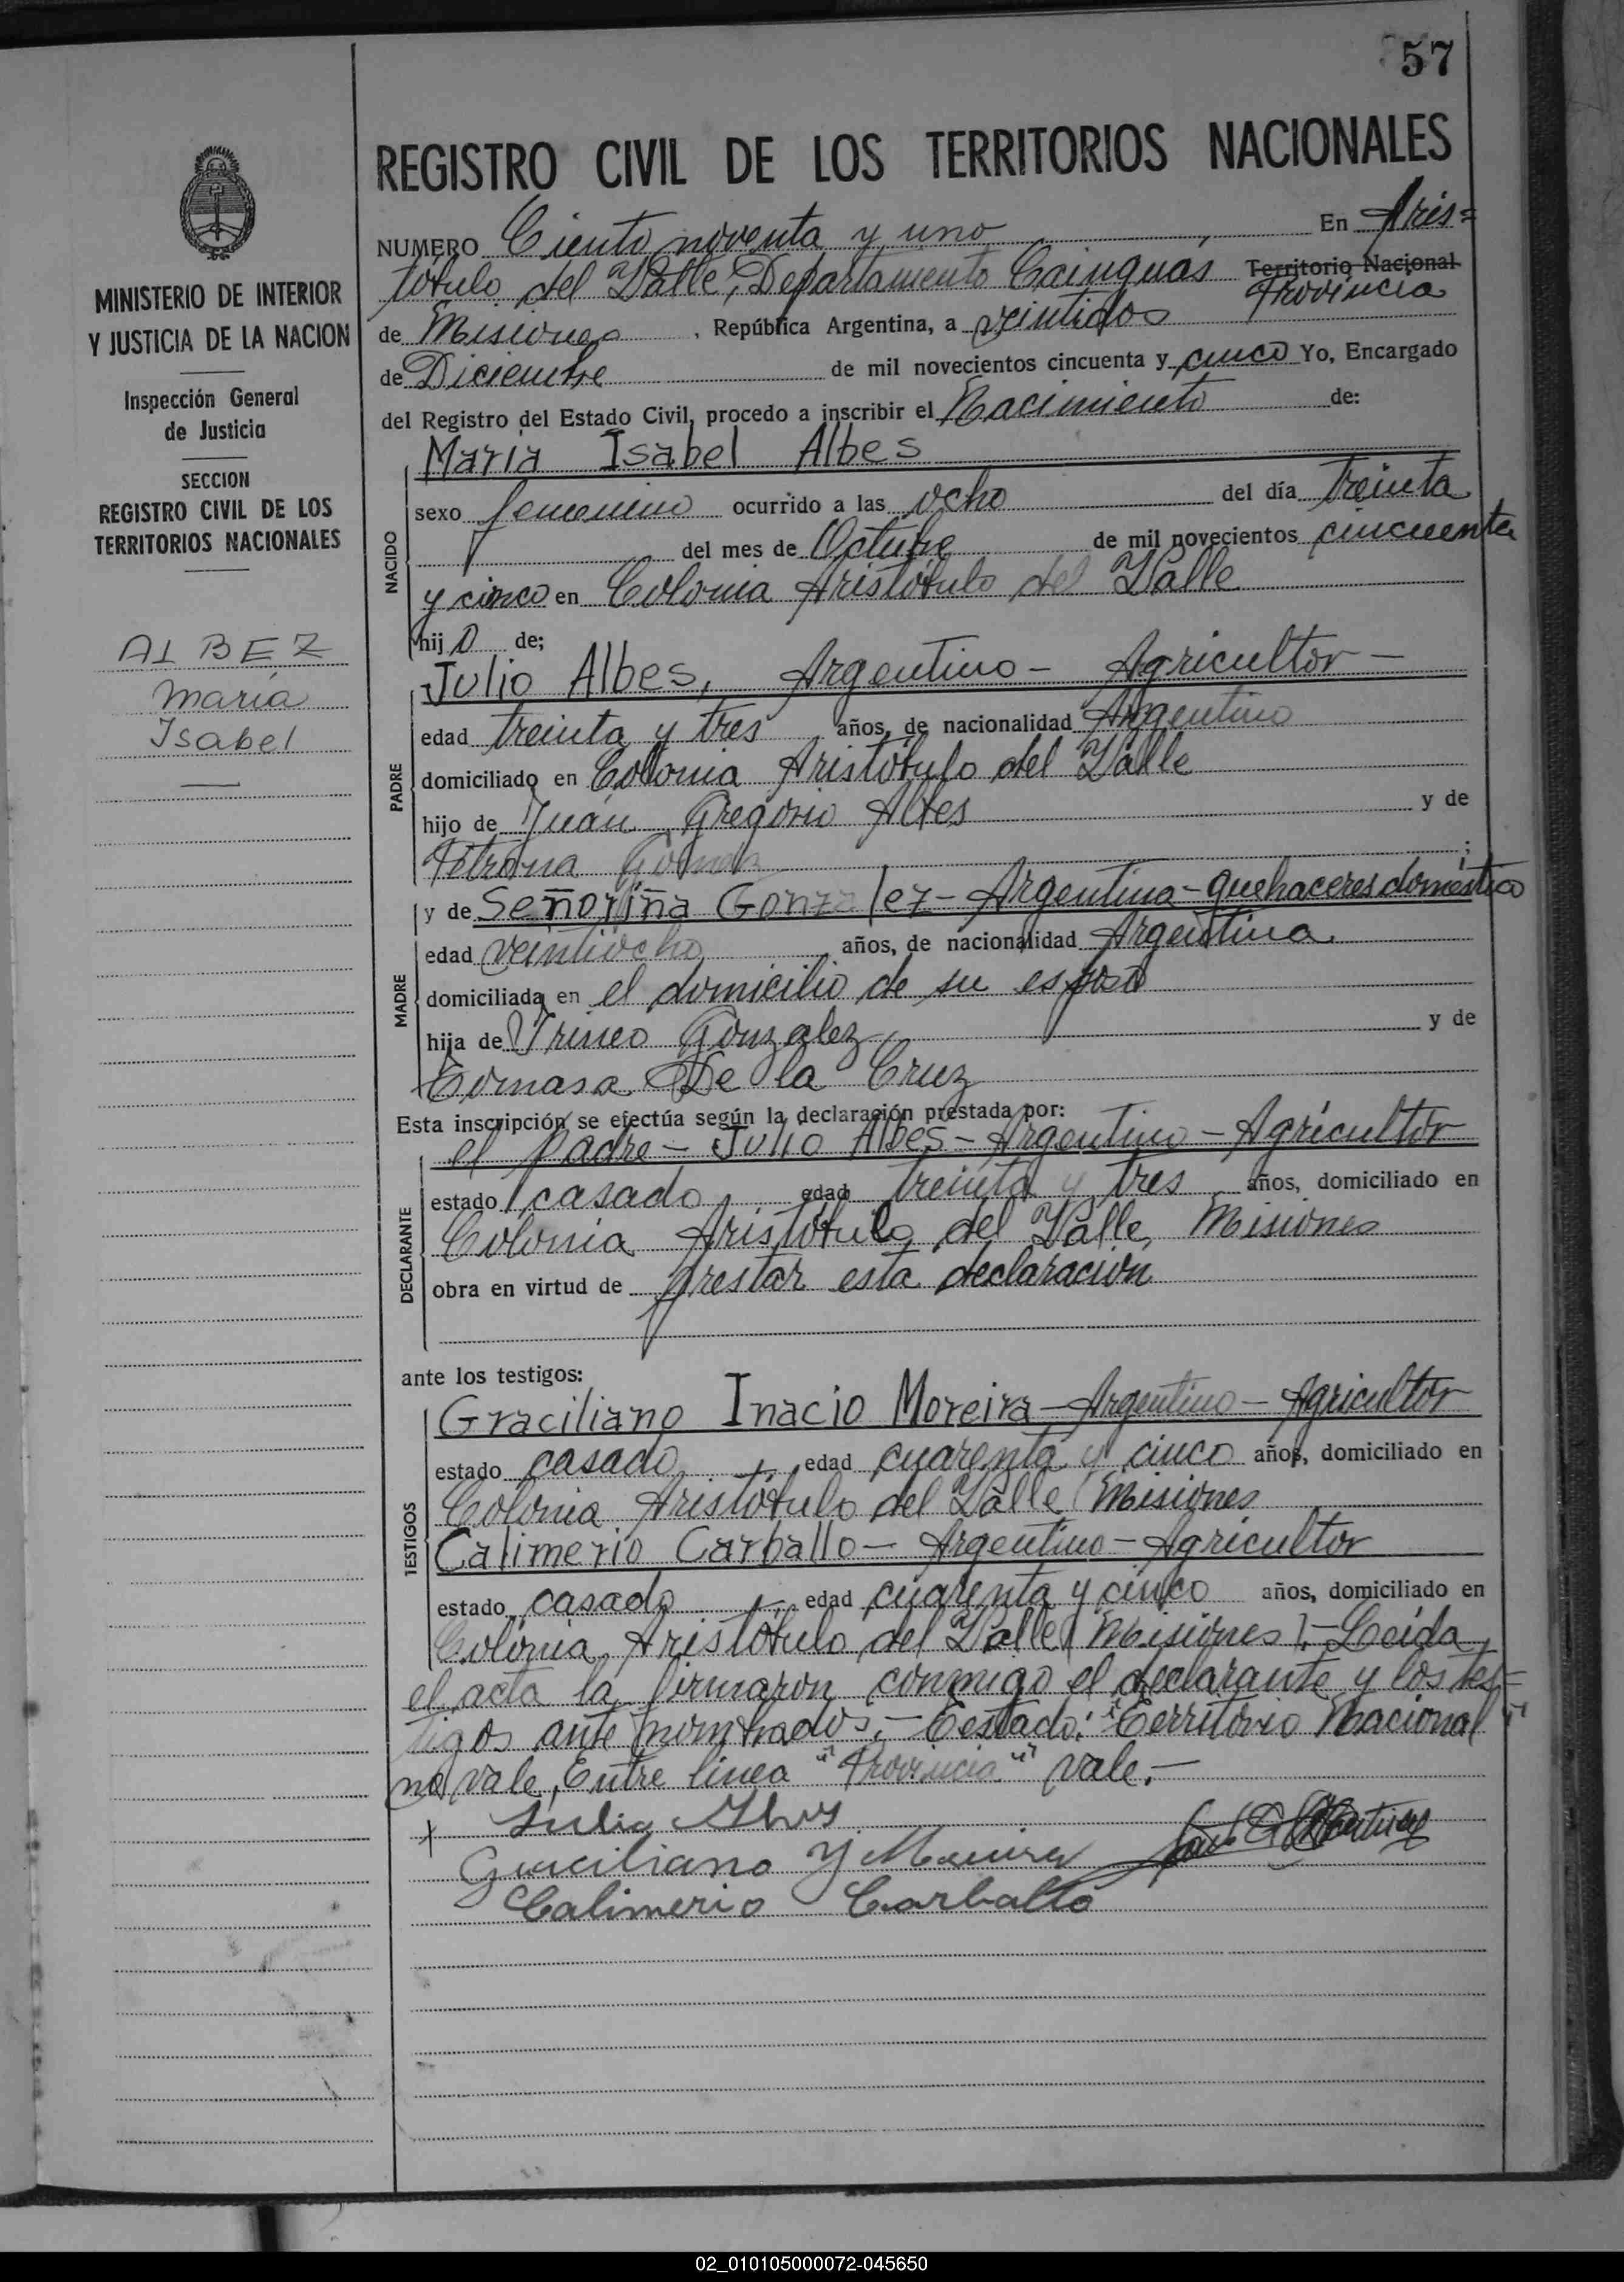 57
REGISTRO CIVIL DE LOS TERRITORIOS NACIONALES
MINISTERIO DE INTERIOR
Y JUSTICIA DE LA NACION
Inspección General
de Justicia
SECCION
REGISTRO CIVIL DE LOS
TERRITORIOS NACIONALES
ALBEZ
María
Isabel
—
NUMERO Ciento noventa y uno, En Aris=
tóbulo del Valle, Departamento Cainguas Territorio Nacional
Provincia
de Misiones, República Argentina, a veintidos
de Diciembre de mil novecientos cincuenta y cinco Yo, Encargado
del Registro del Estado Civil, procedo a inscribir el Nacimiento de:
María Isabel Albes
NACIDO
sexo femenino ocurrido a las ocho del día treinta
del mes de Octubre de mil novecientos cincuenta
y cinco en Colonia Aristóbulo del Valle
hij a de;
Julio Albes, Argentino - Agricultor -
PADRE
edad treinta y tres años, de nacionalidad Argentino
domiciliado en Colonia Aristóbulo del Valle
hijo de Juan Gregorio Albes y de
Petrona ;
y de Señoriña Gonzalez - Argentina - quehaceres domestico
MADRE
edad veintiocho años, de nacionalidad Argentina
domiciliada en el domicilio de su esposo
hija de Irineo Gonzalez y de
Tomasa De la Cruz
Esta inscripción se efectúa según la declaración prestada por:
el padre - Julio Albes - Argentino - Agricultor
DECLARANTE
estado casado, edad treinta y tres años, domiciliado en
Colonia Aristóbulo del Valle, Misiones
obra en virtud de prestar esta declaración
ante los testigos:
Graciliano Inacio Moreira - Argentino - Agricultor
TESTIGOS
estado casado, edad cuarenta y cinco años, domiciliado en
Colonia Aristóbulo del Valle (Misiones
Calimerio Carballo - Argentino - Agricultor
estado casado, edad cuarenta y cinco años, domiciliado en
Colonia Aristóbulo del Valle (Misiones).- Leída
el acta la firmaron conmigo el declarante y los tes=
tigos ante nombrados.- Testado: "Territorio Nacional"
no vale, Entre línea "Provincia" vale.-
x Julio
Graciliano Y Moreira
Calimerio Carballo
02_010105000072-045650